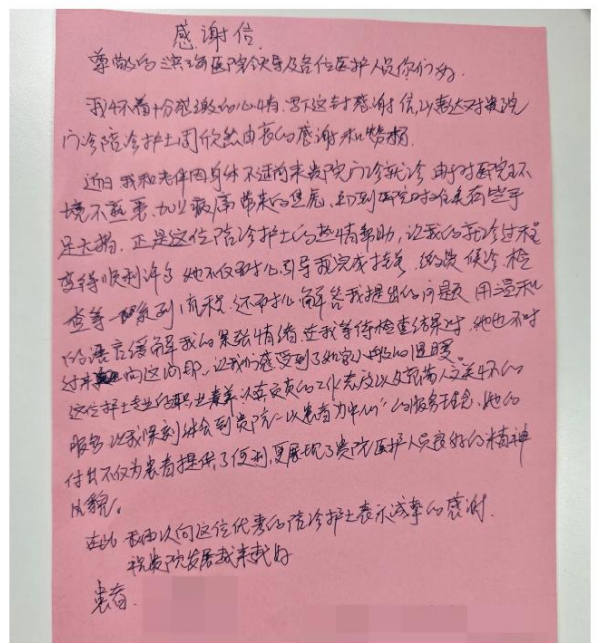 感谢信
尊敬的滨海医院领导及各位医护人员你们好
我怀着十分感激的心情,写下这封感谢信,以表达对贵院
门诊陪诊护士周欣然由衷的感谢和赞扬.
近日我和老伴因身体不适前来贵院门诊就诊由于对医院环
境不熟悉、加以病痛带来的焦虑,刚到医院时难免有些手
足无措.正是这位陪诊护士的热情帮助,让我的就诊过程
变得顺利许多她不仅耐心引导我完成挂号、缴费候诊检
查等一系列流程.还耐心解答我提出的问题用温和
的语言缓解我的紧张情绪.在我等待检查结果时,她也不时
过来问这问那,让我们感受到了如家人般的温暖。
这位护士专业的职业素养认真负责的工作态度以及充满人文关怀的
服务让我深刻体会到贵院"以患者为中心"的服务理念,她的
付出不仅为患者提供了便利,更展现了贵院医护人员良好的精神
风貌。
在此我再次向这位优秀的陪诊护士表示诚挚的感谢.
祝贵院发展越来越好
患者.